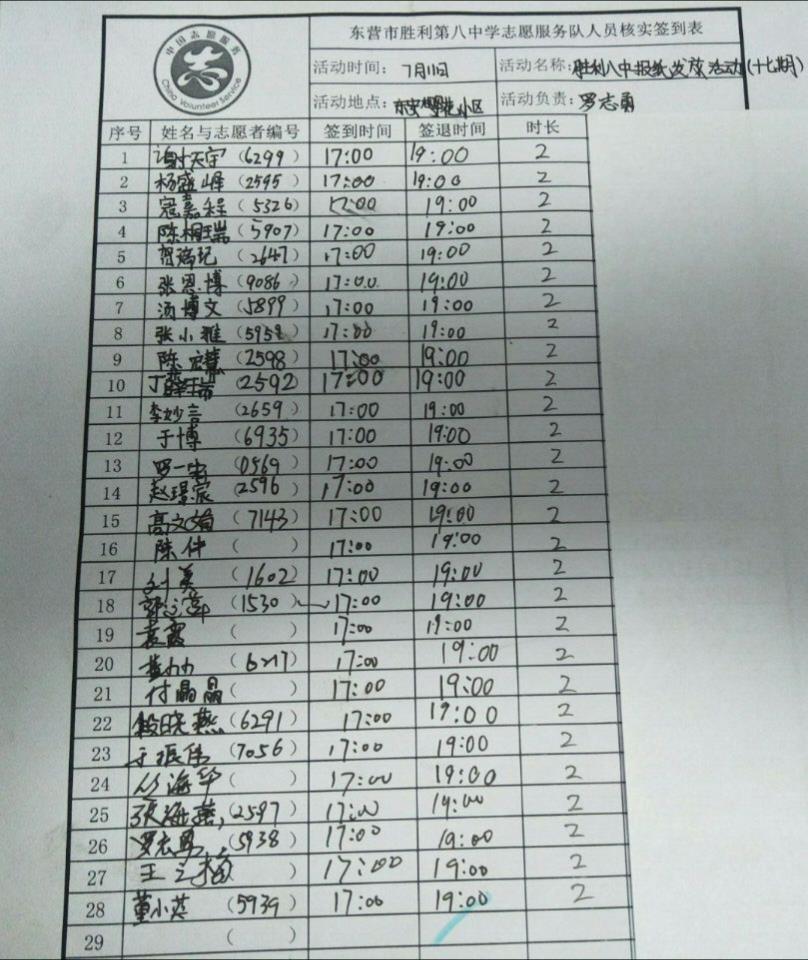 中国志愿服务
China Volunteer Service
东营市胜利第八中学志愿服务队人员核实签到表
活动时间: 7月11日 活动名称: 胜利八中报纸发放活动(十七期)
活动地点: 小区 活动负责: 罗志勇
序号 姓名与志愿者编号 签到时间 签退时间 时长
1 谢天宇 (6299) 17:00 19:00 2
2 杨盛峰 (2595) 17:00 19:00 2
3 寇嘉程 (5326) 17:00 19:00 2
4 陈桐瑞 (5907) 17:00 19:00 2
5 (2647) 17:00 19:00 2
6 张恩博 (9086) 17:00 19:00 2
7 汤博文 (5899) 17:00 19:00 2
8 张小雅 (595 ) 17:00 19:00 2
9 陈 (2598) 17:00 19:00 2
10 (2592) 17:00 19:00 2
11 李妙言 (2659) 17:00 19:00 2
12 于博 (6935) 17:00 19:00 2
13 罗一 (0569) 17:00 19:00 2
14 赵璟宸 (2596) 17:00 19:00 2
15 高文娟 (7143) 17:00 19:00 2
16 陈伟 ( ) 17:00 19:00 2
17 刘美 (1602) 17:00 19:00 2
18 (1530) 17:00 19:00 2
19 袁霞 ( ) 17:00 19:00 2
20 (6217) 17:00 19:00 2
21 付晶晶 ( ) 17:00 19:00 2
22 殷晓燕 (6291) 17:00 19:00 2
23 于振伟 (7056) 17:00 19:00 2
24 丛海华 ( ) 17:00 19:00 2
25 张海燕 (2597) 17:00 19:00 2
26 罗志勇 (5938) 17:00 19:00 2
27 王之梅 ( ) 17:00 19:00 2
28 董小英 (5939) 17:00 19:00 2
29 ( )